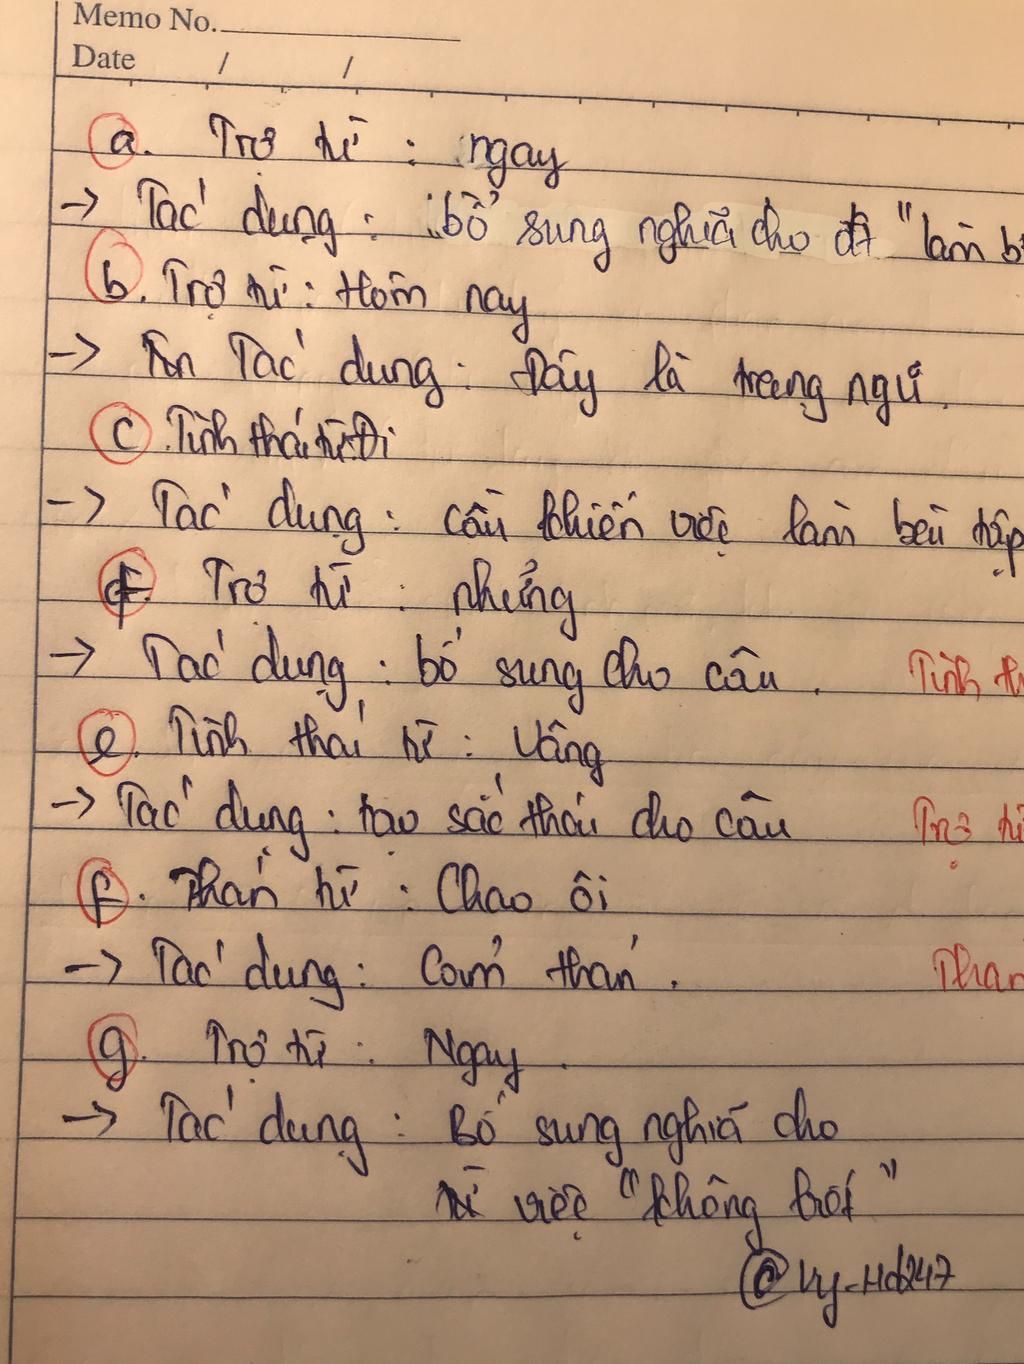 Memo No.
Date / /
a. Trợ từ : ngay
→ Tác dụng : bổ sung nghĩa cho đt "làm
b. Trợ từ : Hôm nay
→ Tác dụng : Đây là trạng ngữ.
c. Tình thái từ: Đi
→ Tác dụng : cầu khiến việc làm bài tập
d. Trợ từ : những
→ Tác dụng : bổ sung cho câu . Tình
e. Tình thái từ : Vâng
→ Tác dụng : tạo sắc thái cho câu Trợ từ
f. Thán từ : Chao ôi
→ Tác dụng : Cảm thán . Than
g. Trợ từ : Ngay .
→ Tác dụng : Bổ sung nghĩa cho
từ việc "không trót"
@Vy_Hd247